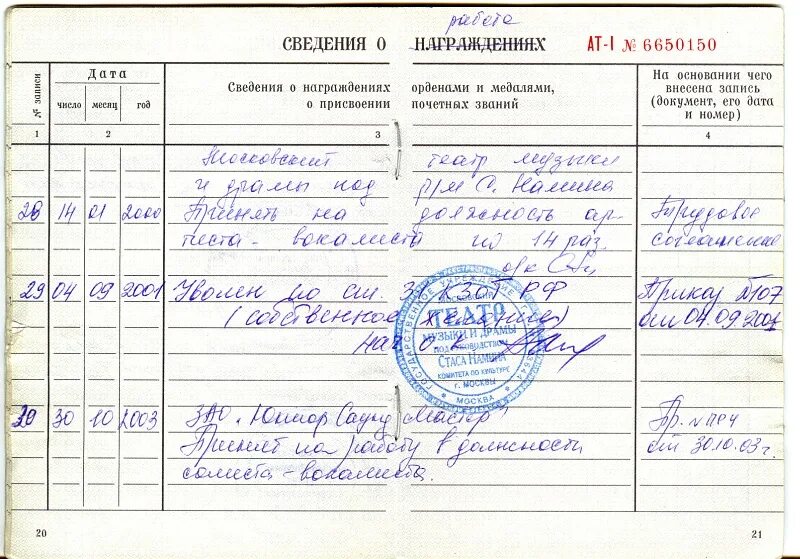 работа
СВЕДЕНИЯ О НАГРАЖДЕНИЯХ АТ-I № 6650150
№ записи
Дата
число месяц год
Сведения о награждениях орденами и медалями,
о присвоении почетных званий
На основании чего
внесена запись
(документ, его дата
и номер)
1 2 3 4
Московский театр музыки
и драмы под р/м С. Намина
28 14 01 2000 Принять на должность ар- Трудовое
тиста-вокалиста по 14 раз. соглашение
29 04 09 2001 Уволен по ст. 31 КЗОТ РФ Приказ №107
(собственное желание) от 04.09.2001
нач. О.К.
МОСКОВСКИЙ
ТЕАТР
МУЗЫКИ И ДРАМЫ
ПОД РУКОВОДСТВОМ
СТАСА НАМИНА
КОМИТЕТА ПО КУЛЬТУРЕ
г. МОСКВЫ
* МОСКВА *
ГОСУДАРСТВЕННОЕ УЧРЕЖДЕНИЕ
30 30 10 2003 ЗАО "Юниор Саунд Мастер" Пр. №
Принят на работу в должности от 30.10.03 г.
солиста-вокалиста.
20 21